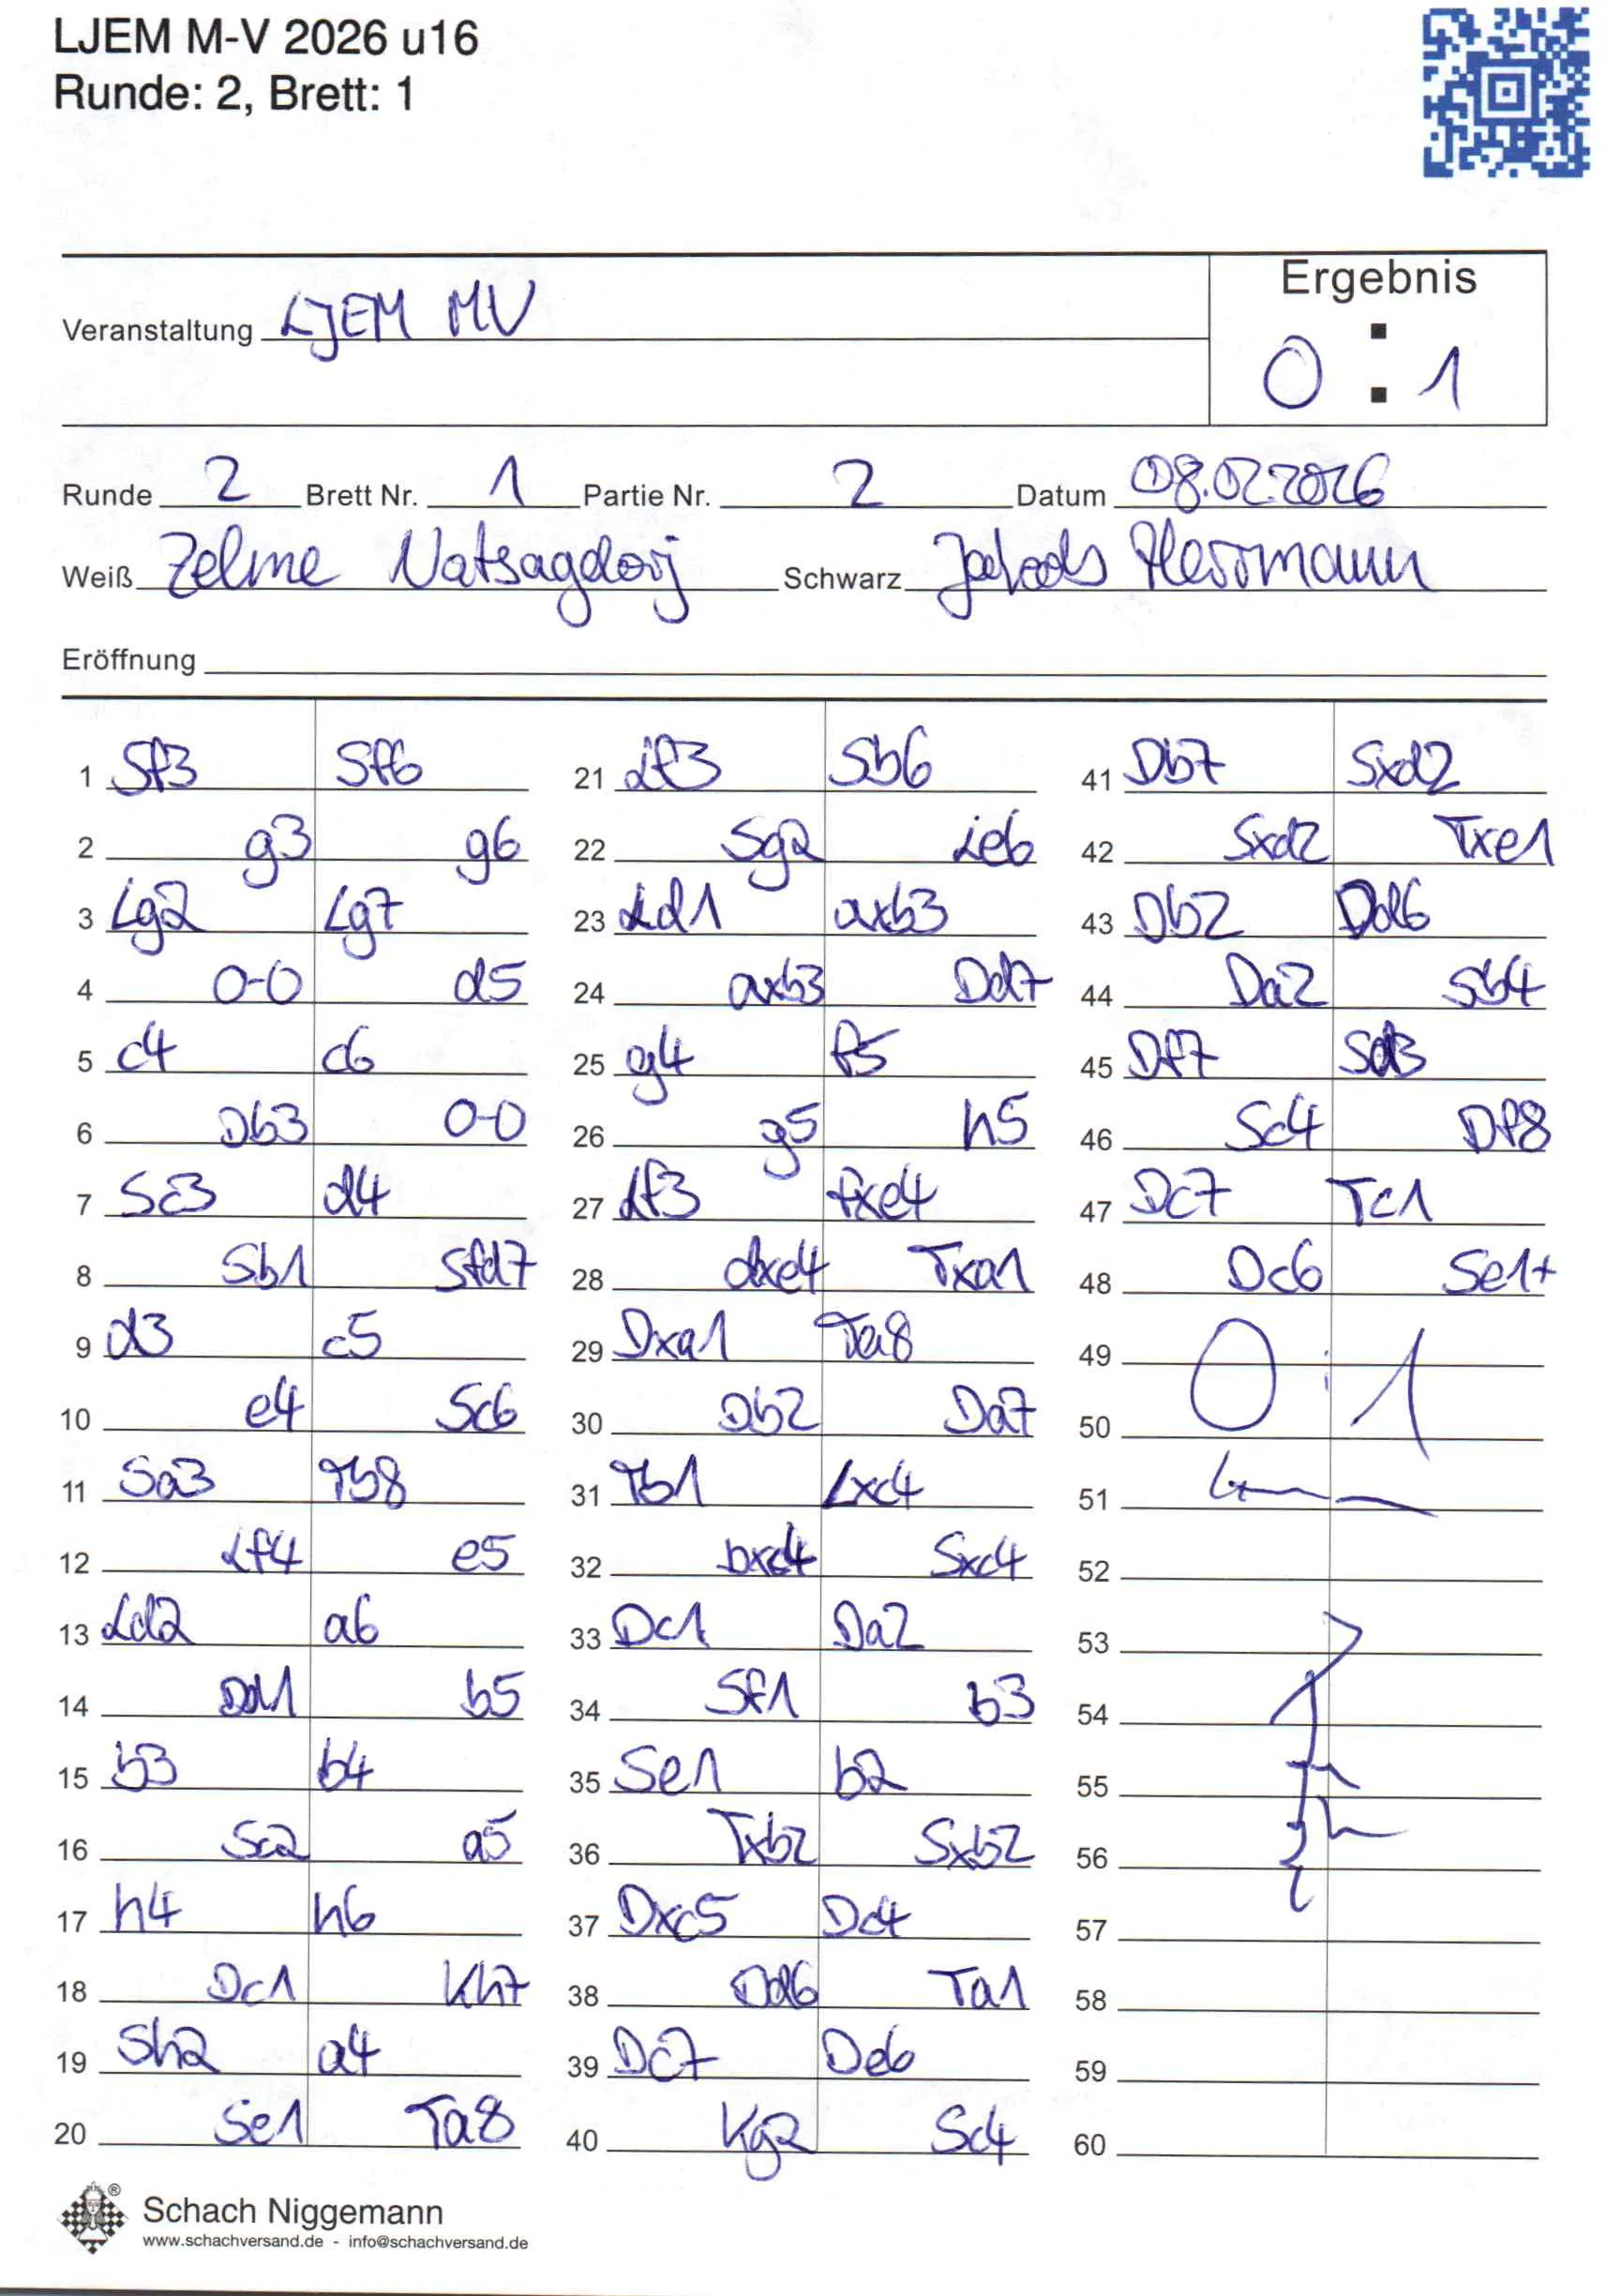 LJEM M-V 2026 u16
Runde: 2, Brett: 1
Ergebnis
Veranstaltung LJEM MV
0 : 1
Runde 2 Brett Nr. 1 Partie Nr. 2 Datum 08.02.2026
Weiß Zelme Natsagdorj Schwarz Herrmann
Eröffnung
1 Sf3 Sf6 21 Lf3 Sb6 41 Db7 Sxd2
2 g3 g6 22 Sg2 Le6 42 Sxd2 Txe1
3 Lg2 Lg7 23 Ld1 axb3 43 Db2 Dd6
4 0-0 d5 24 axb3 Dd7 44 Da2 Sb4
5 c4 c6 25 g4 f5 45 Df7 Sd3
6 Db3 0-0 26 g5 h5 46 Sc4 Df8
7 Sc3 d4 27 Lf3 fxe4 47 Dc7 Tc1
8 Sb1 Sfd7 28 dxe4 Txa1 48 Dc6 Se1+
9 d3 c5 29 Dxa1 Ta8 49 0 : 1
10 e4 Sc6 30 Db2 Da7 50
11 Sa3 Tb8 31 Tb1 Lxc4 51
12 Lf4 e5 32 bxc4 Sxc4 52
13 Ld2 a6 33 Dc1 Da2 53
14 Dd1 b5 34 Sf1 b3 54
15 b3 b4 35 Se1 b2 55
16 Sc2 a5 36 Txb2 Sxb2 56
17 h4 h6 37 Dxc5 Dc4 57
18 Dc1 Kh7 38 Dd6 Ta1 58
19 Sh2 a4 39 Dc7 De6 59
20 Se1 Ta8 40 Kg2 Sc4 60
® Schach Niggemann
www.schachversand.de - info@schachversand.de